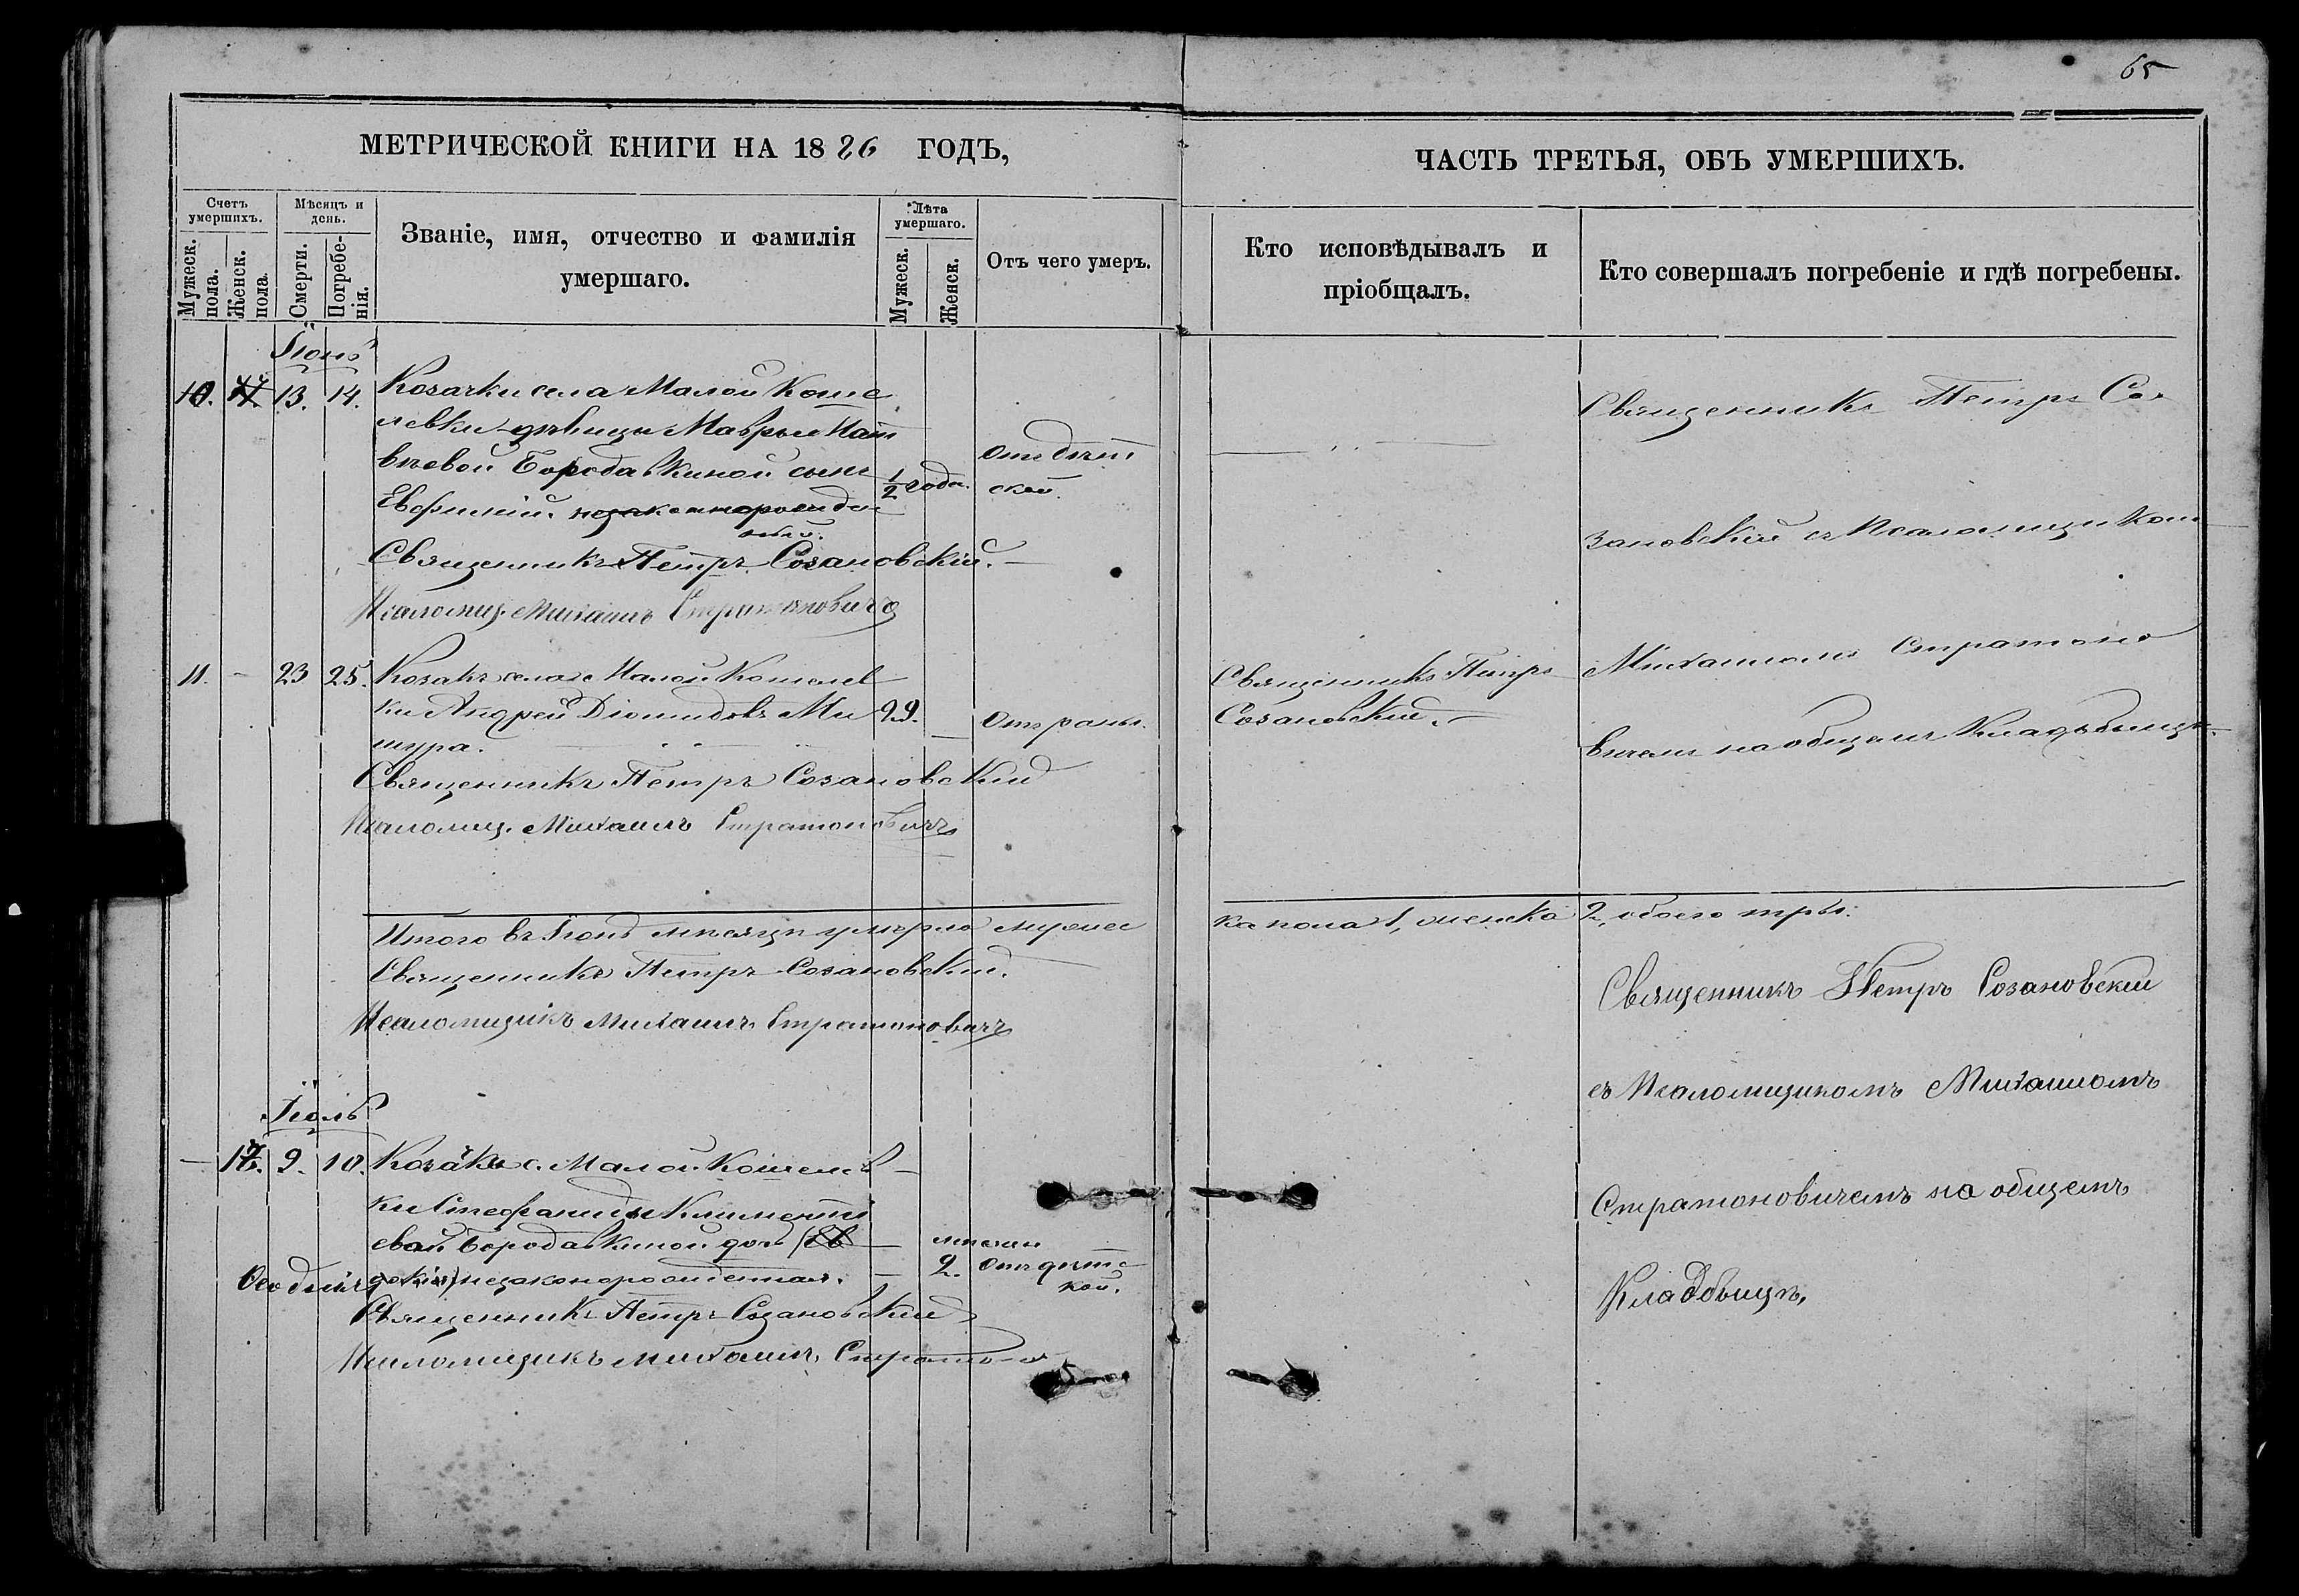 65
МЕТРИЧЕСКОЙ КНИГИ НА 1886 ГОДЪ,
ЧАСТЬ ТРЕТЬЯ, ОБЪ УМЕРШИХЪ.
Счетъ умершихъ.
Мѣсяцъ и день.
Званіе, имя, отчество и фамилія умершаго.
Лѣта умершаго.
Отъ чего умеръ.
Кто исповѣдывалъ и пріобщалъ.
Кто совершалъ погребеніе и гдѣ погребены.
Мужеск. пола.
Женск. пола.
Смерти.
Погребенія.
Мужеск.
Женск.
Іюнь
10. 13. 14. Козачки села Малой Коше
левки дѣвицы Мавры Мат
вѣевой Бородавкиной сынъ
Евфимій. незаконнорожден
ный.
1/2 года.
отъ дѣт
ской.
Священникъ Петръ Созановскій.
Псаломщ. Михаилъ Стратоновичъ
11. - 23 25. Козакъ села Малой Кошелев
ки Андрей Діомидовъ Ми
шура.
29.
Отъ раны.
Священникъ Петръ
Созановскій.
Священникъ Петръ Созановскій
Псаломщ. Михаилъ Стратоновичъ
Священникъ Петръ Со
зановскій съ Псаломщикомъ
Михаиломъ Стратоно
вичемъ на общемъ Кладбищѣ.
Итого въ Іюнѣ мѣсяцѣ умерло мужес
ка пола 1, женска 2, обоего три.
Священникъ Петръ Созановскій.
Псаломщикъ Михаилъ Стратоновичъ
Іюль
- 9. 10. Козачки с. Малой Кошелев
ки Стефаниды Климентi
евой Бородавкиной дочь
Ѳеодосія незаконорожденная.
мѣсяца
2.
Отъ дѣтс
кой.
Священникъ Петръ Созановскій
Псаломщикъ Михаилъ Стратоно
Священникъ Петръ Созановскій
съ Псаломщикомъ Михаиломъ
Стратоновичемъ на общемъ
Кладбищѣ,